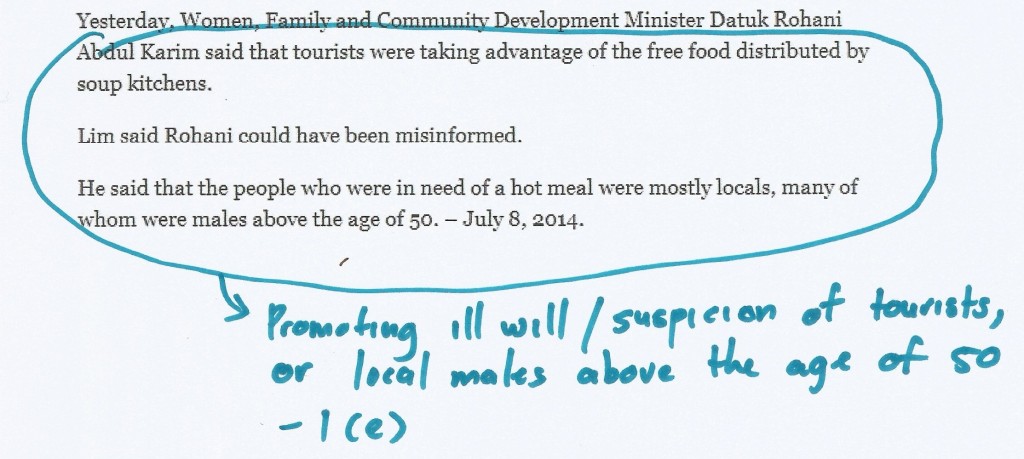 Yesterday, Women, Family and Community Development Minister Datuk Rohani
Abdul Karim said that tourists were taking advantage of the free food distributed by
soup kitchens.
Lim said Rohani could have been misinformed.
He said that the people who were in need of a hot meal were mostly locals, many of
whom were males above the age of 50. – July 8, 2014.
Promoting ill will / suspicion of tourists,
or local males above the age of 50
- 1 (e)